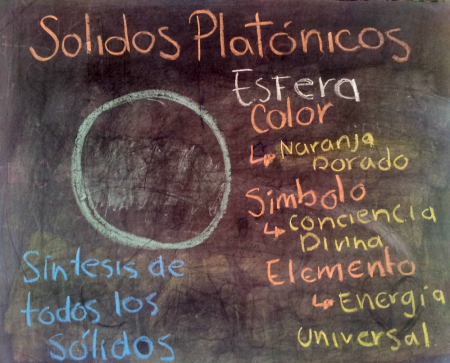 Solidos Platónicos
Esfera
Color
↳ Naranja
Dorado
Simbolo
↳ Conciencia
Divina
Elemento
↳ Energía
Universal
Síntesis de
todos los
Sólidos